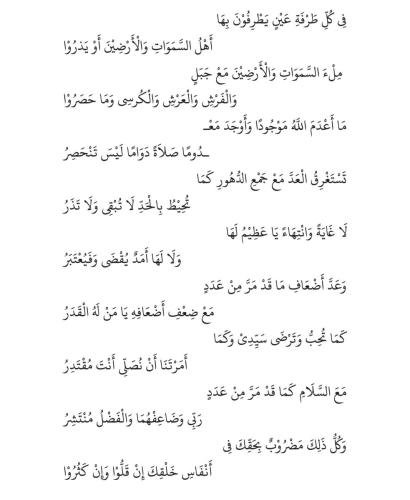 فِى كُلِّ طَرْفَةِ عَيْنٍ يَطْرِفُوْنَ بِهَا
أَهْلُ السَّمَوَاتِ وَالْأَرْضِيْنَ أَوْ يَذَرُوْا
مِلْءَ السَّمَوَاتِ وَالْأَرْضِيْنَ مَعْ جَبَلٍ
وَالْفَرْشِ وَالْعَرْشِ وَالْكُرْسِى وَمَا حَصَرُوْا
مَا أَعْدَمَ اللَّهُ مَوْجُودًا وَأَوْجَدَ مَعْـ
ـدُومًا صَلاَةً دَوَامًا لَيْسَ تَنْحَصِرُ
تَسْتَغْرِقُ الْعَدَّ مَعْ جَمْعِ الدُّهُورِ كَمَا
تُحِيْطُ بِالْحَدِّ لَا تُبْقِى وَلَا تَذَرُ
لَا غَايَةً وَانْتِهَاءً يَا عَظِيْمُ لَهَا
وَلَا لَهَا أَمَدٌ يُقْضَى وَفَيُعْتَبَرُ
وَعَدَّ أَضْعَافِ مَا قَدْ مَرَّ مِنْ عَدَدٍ
مَعْ ضِعْفِ أَضْعَافِهِ يَا مَنْ لَهُ الْقَدَرُ
كَمَا تُحِبُّ وَتَرْضَى سَيِّدِىْ وَكَمَا
أَمَرْتَنَا أَنْ نُصَلِّى أَنْتَ مُقْتَدِرُ
مَعَ السَّلَامِ كَمَا قَدْ مَرَّ مِنْ عَدَدٍ
رَبِّى وَضَاعِفْهُمَا وَالْفَضْلُ مُنْتَشِرُ
وَكُلُّ ذَلِكَ مَضْرُوْبٌ بِحَقِّكَ فِى
أَنْفَاسِ خَلْقِكَ إِنْ قَلُّوْا وَإِنْ كَثُرُوْا